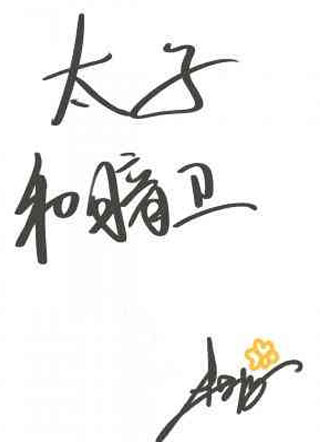 太子
和暗卫